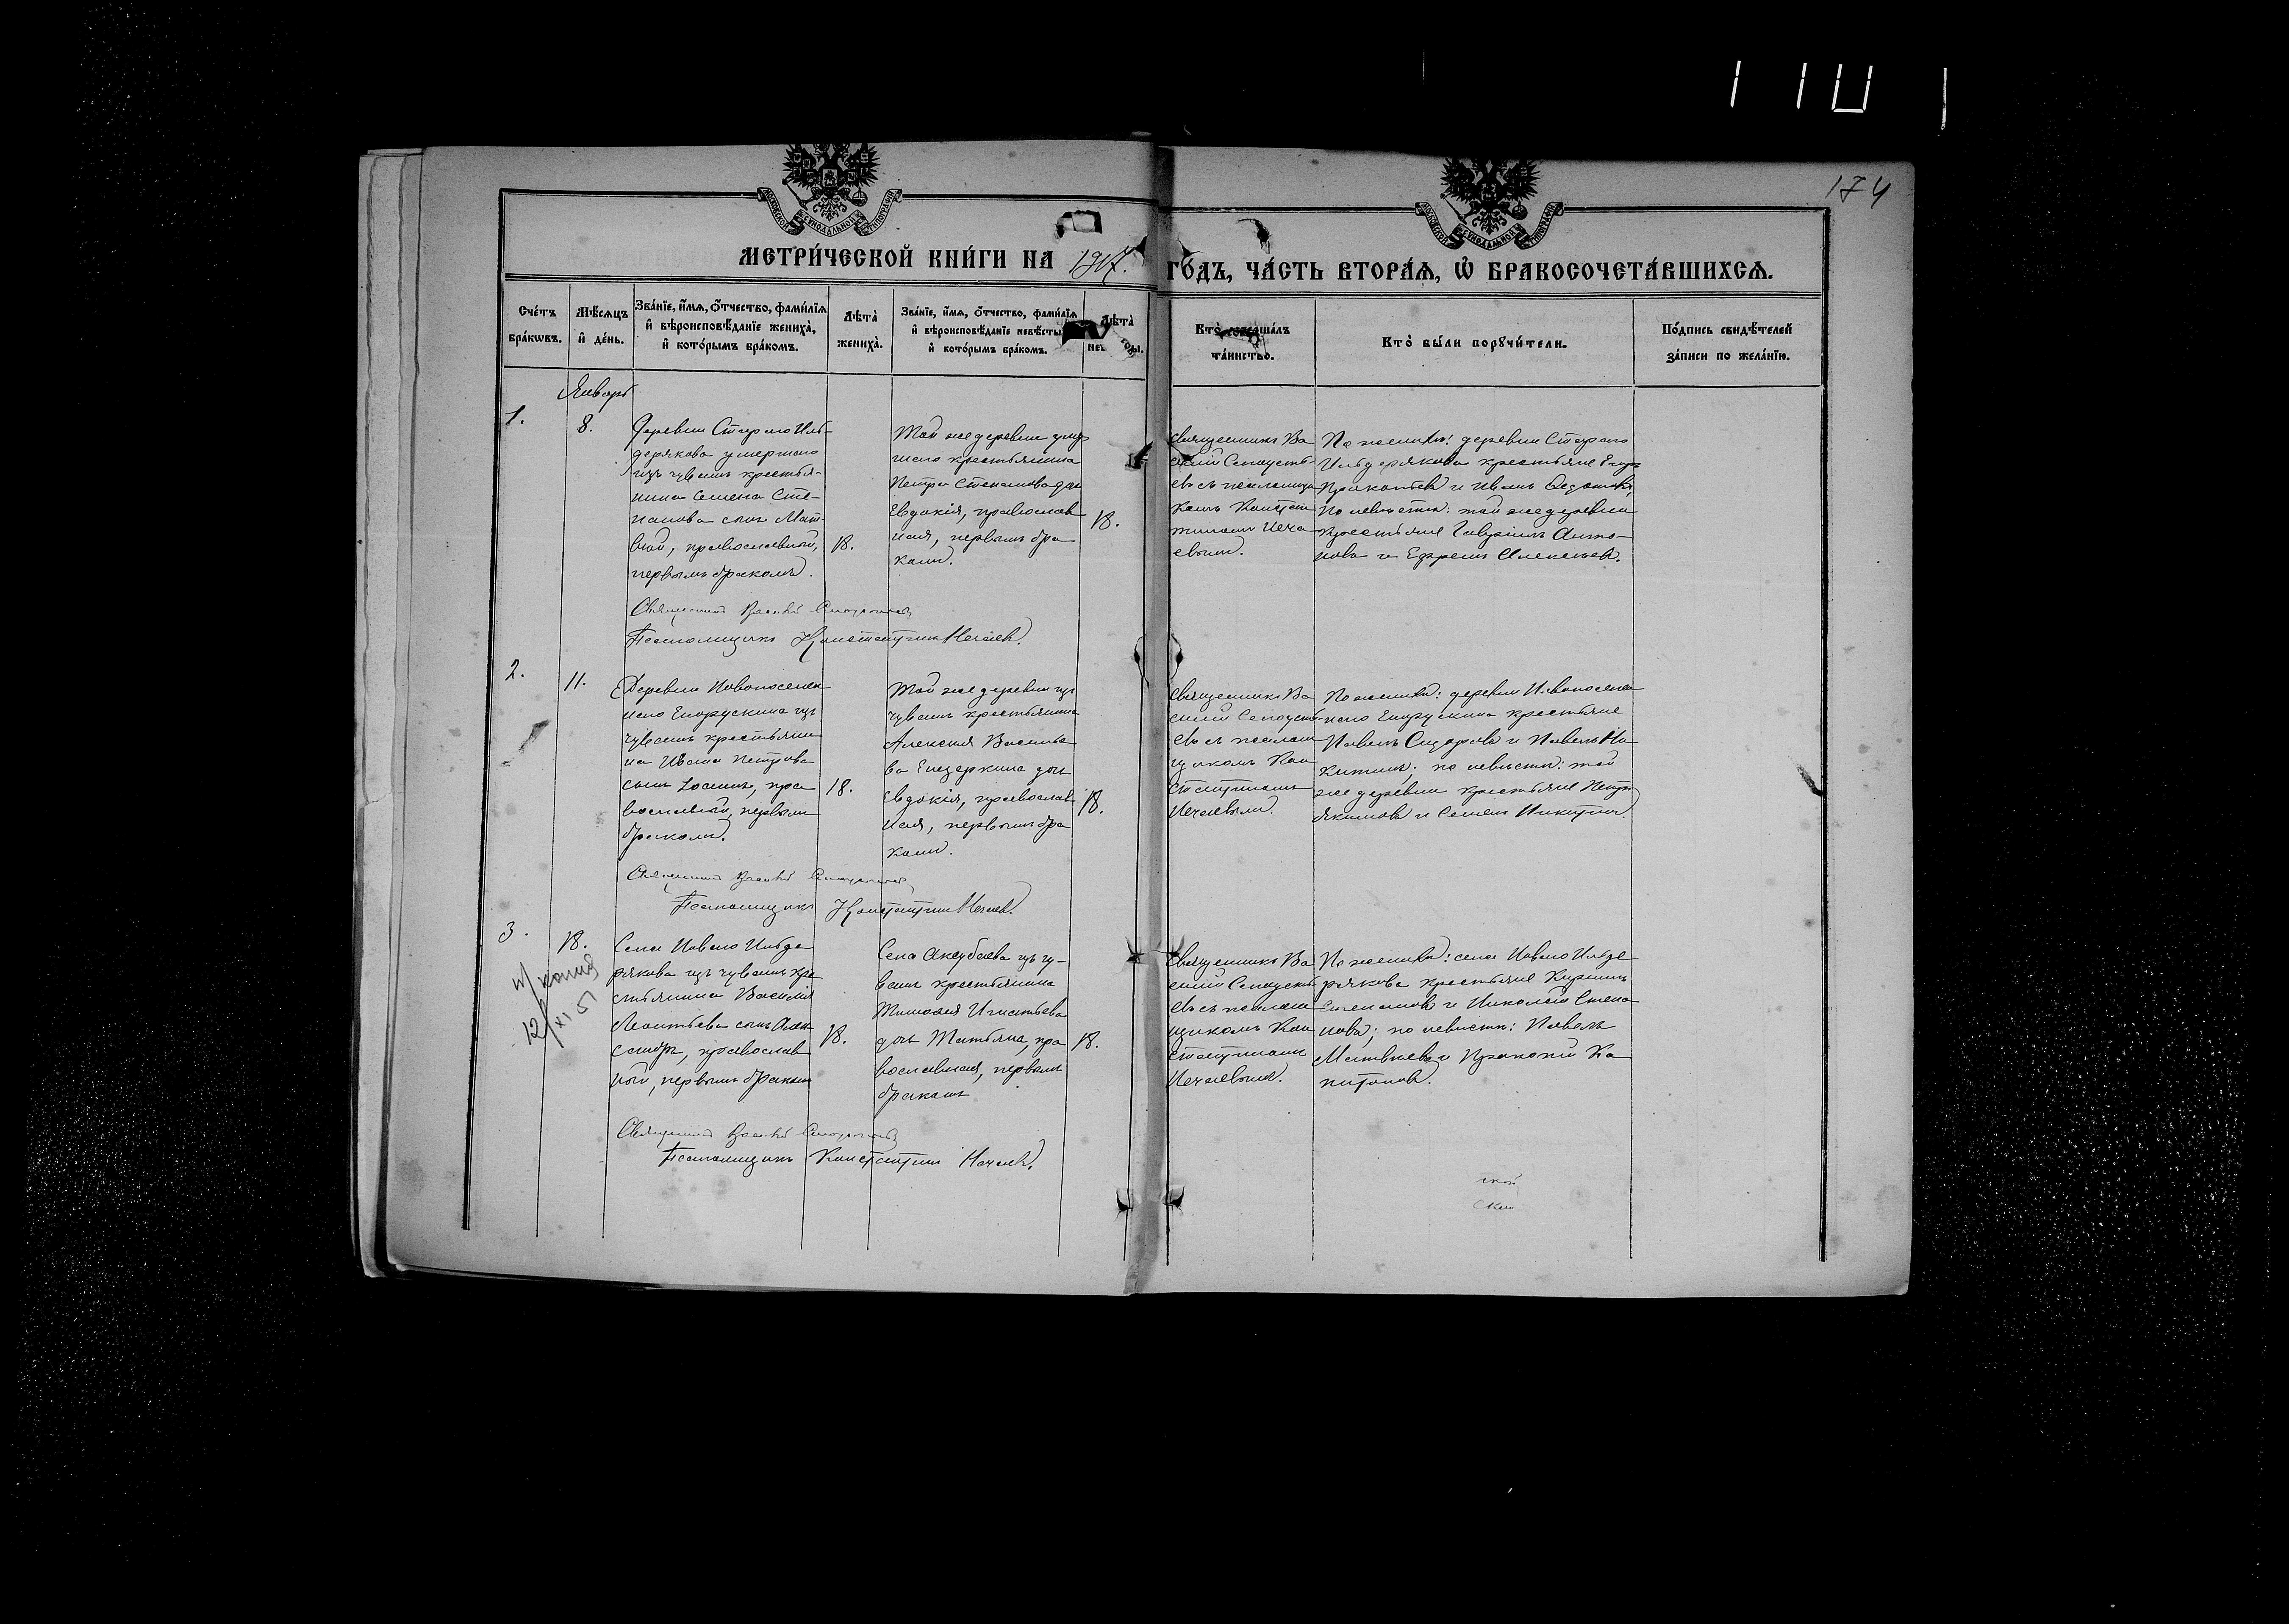 174
МОСКОВСКОЙ СѴНОДАЛЬНОЙ ТИПОГРАФІИ
МОСКОВСКОЙ СѴНОДАЛЬНОЙ ТИПОГРАФІИ
МЕТРИ́ЧЕСКОЙ КНИ́ГИ НА 1917.
ГО́ДЪ, ЧА́СТЬ ВТОРА́Ѧ, Ѽ БРАКОСОЧЕТА́ВШИХСѦ.
Сче́тъ
бра́кѡвъ.
Мѣ́сѧцъ
и҆ де́нь.
Зва́нїе, и҆́мѧ, ѻ҆́тчество, фами́лїѧ
и҆ вѣроисповѣ́данїе жениха̀,
и҆ кото́рымъ бра́комъ.
Лѣ́та̀
жениха̀.
Зва́нїе, и҆́мѧ, ѻ҆́тчество, фами́лїѧ
и҆ вѣроисповѣ́данїе невѣ́сты
и҆ кото́рымъ бра́комъ.
Лѣ́та̀
Кто̀ соверша́лъ
та́инство.
Кто̀ бы́ли порꙋчи́тели.
По́дпись свидѣ́телей
за́писи по жела́нїю.
Январь
1.
8.
Деревни Стараго Иль-
дерякова умершаго
изъ чувашъ крестья-
нина Семена Сте-
панова сынъ Мат-
вѣй, православный,
первымъ бракомъ.
18.
Той же деревни умер
шаго крестьянина
Петра Степанова дочь
Евдокія, православ
ная, первымъ бра
комъ.
18.
Священникъ Ва
силій
въ съ псаломщи
комъ Констан
тиномъ Неча
евымъ.
По женихѣ: деревни Стараго
Ильдерякова крестьяне Егоръ
Прокопьевъ и Иванъ Ѳедотовъ,
по невѣстѣ: той же деревни
крестьяне Гавріилъ Анто-
новъ и Ефремъ Алексѣевъ.
Священникъ Василій
Псаломщикъ Константинъ Нечаевъ.
2.
11.
Деревни Новопоселен
наго изъ
чувашъ крестьяни
на Ивана Петрова
сынъ пра
вославный, первымъ
бракомъ.
18.
Той же деревни изъ
чувашъ крестьянина
Алексѣя Василье
ва дочь
Евдокія, православ
ная, первымъ бра
комъ.
18.
Священникъ Ва
силій
въ съ псалом
щикомъ Кон
стантиномъ
Нечаевымъ.
По женихѣ: деревни Новопоселен
наго крестьяне
Павелъ Сидоровъ и Павелъ Ни
китинъ; по невѣстѣ: той
же деревни крестьяне Петръ
Якимовъ и Семенъ Никитинъ.
Священникъ Василій
Псаломщикъ Константинъ Нечаевъ.
3.
18.
копия
12/XI 5
Села Новаго Ильде
рякова изъ чувашъ кре
стьянина Василія
Леонтьева сынъ Алек
сандръ, православ
ный, первымъ бракомъ
18.
Села Аксубаева изъ чу-
вашъ крестьянина
Тимоѳея Игнатьева
дочь Татьяна, пра
вославная, первымъ
бракомъ
18.
Священникъ Ва
силій
въ съ псалом
щикомъ Кон
стантиномъ
Нечаевымъ.
По женихѣ: села Новаго Ильде
рякова крестьяне
и Николай Степа
новъ; по невѣстѣ: Павелъ
Матвѣевъ и Прокопій Ка
питоновъ.
Священникъ Василій
Псаломщикъ Константинъ Нечаевъ.